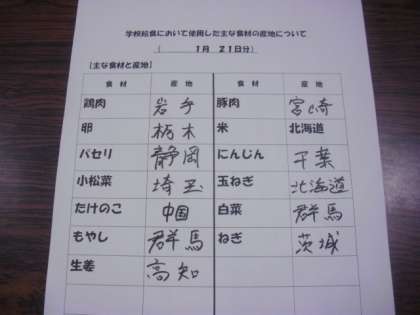 学校給食において使用した主な食材の産地について
（ 1月 21日分）
【主な食材と産地】
食材 産地 食材 産地
鶏肉 岩手 豚肉 宮崎
卵 栃木 米 北海道
パセリ 静岡 にんじん 千葉
小松菜 埼玉 玉ねぎ 北海道
たけのこ 中国 白菜 群馬
もやし 群馬 ねぎ 茨城
生姜 高知